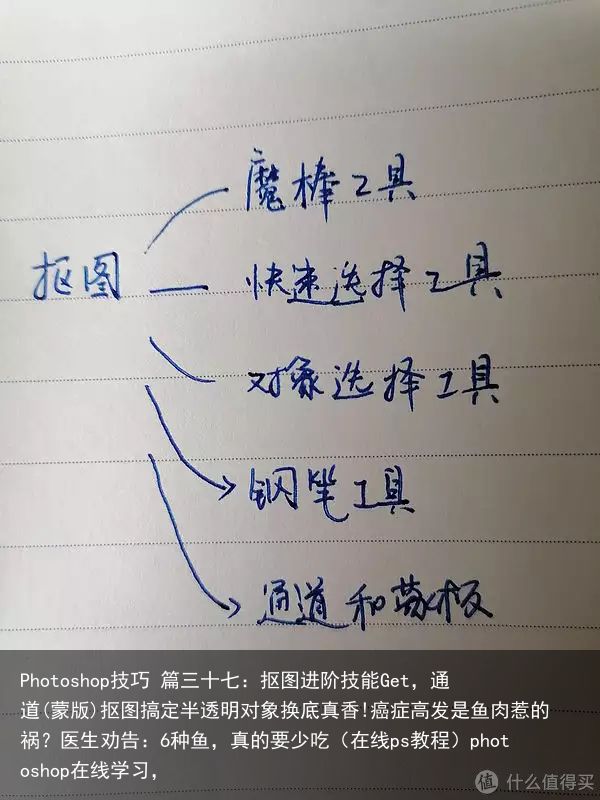 魔棒工具
抠图
快速选择工具
对象选择工具
钢笔工具
通道和蒙板
Photoshop技巧 篇三十七：抠图进阶技能Get，通
道(蒙版)抠图搞定半透明对象换底真香!癌症高发是鱼肉惹的
祸？医生劝告：6种鱼，真的要少吃（在线ps教程）phot
oshop在线学习，
值 什么值得买